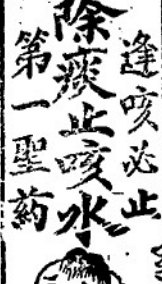 逢咳必止
除痰止咳水
第一聖葯